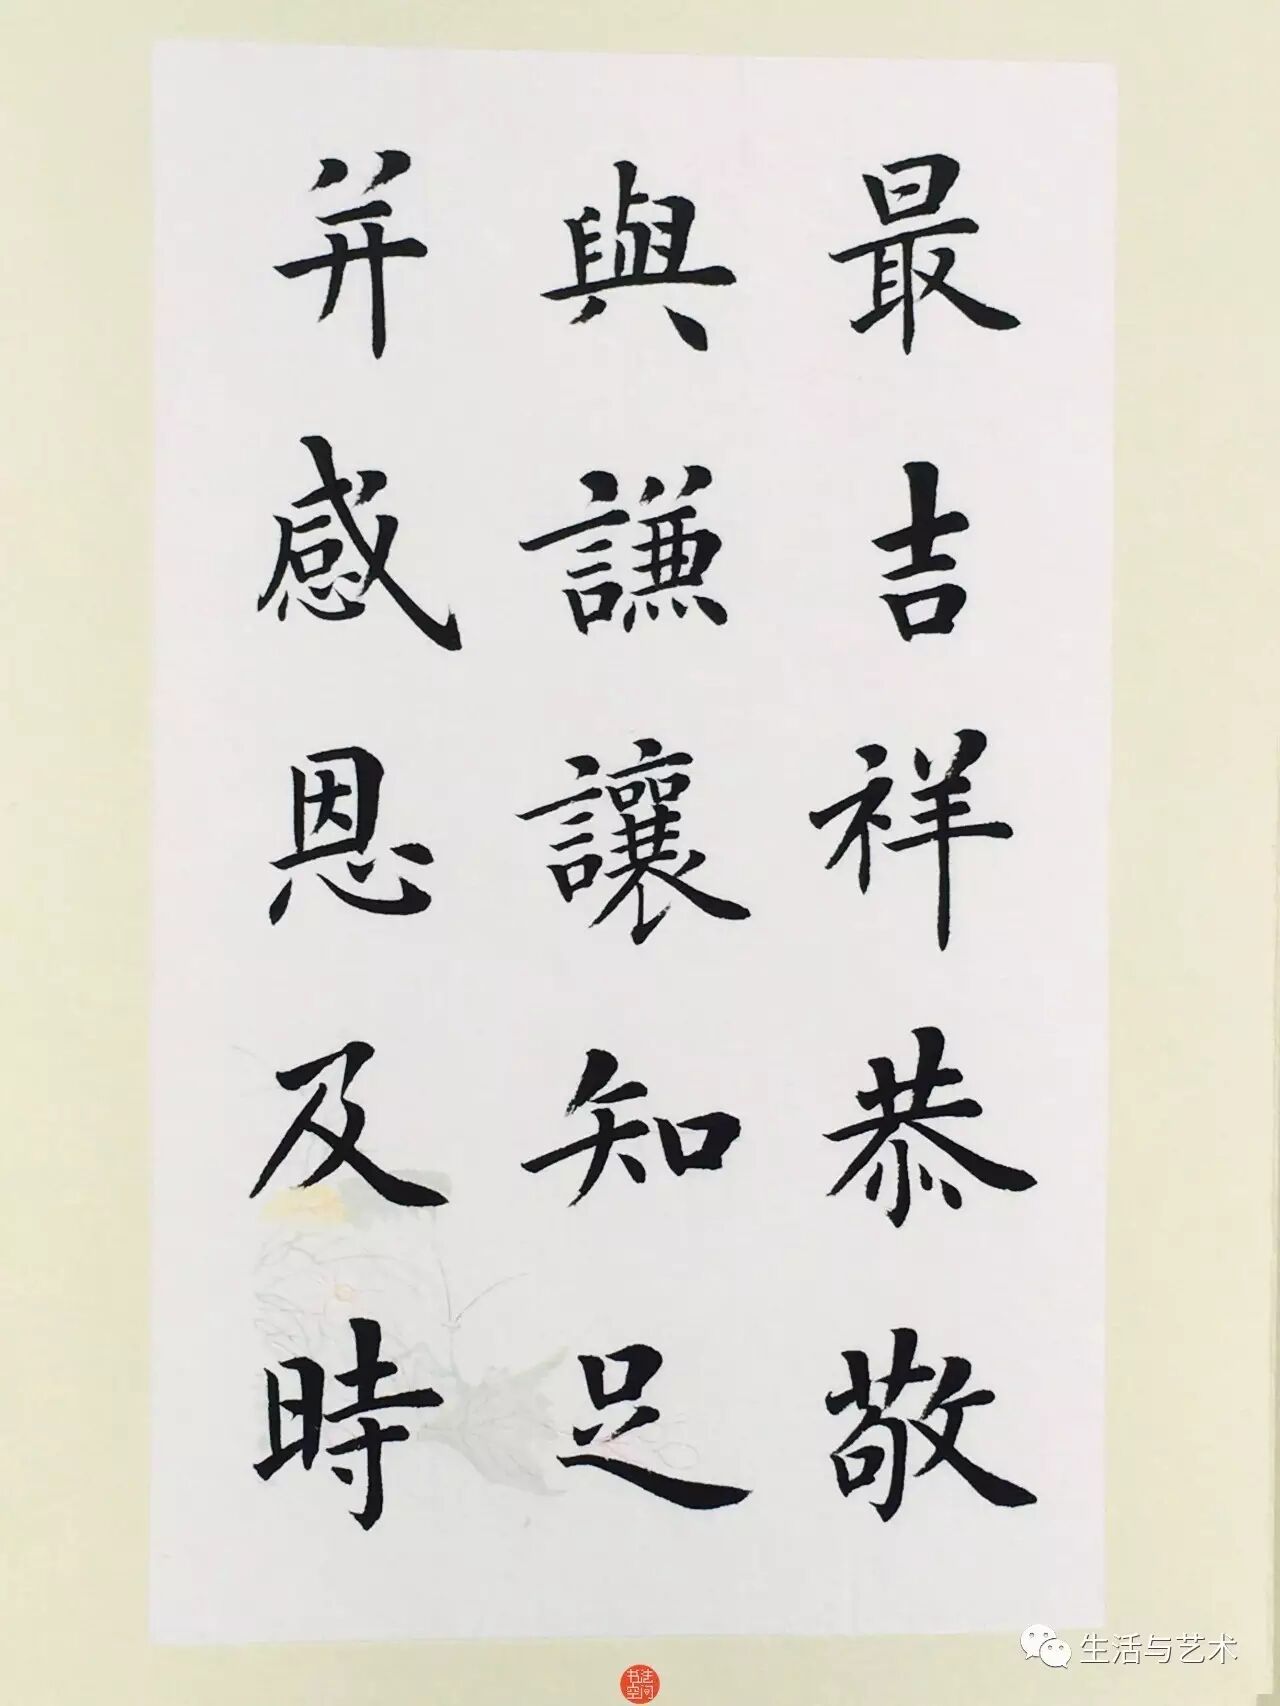 最吉祥恭敬
與謙讓知足
并感恩及時
生活与艺术
书法空间